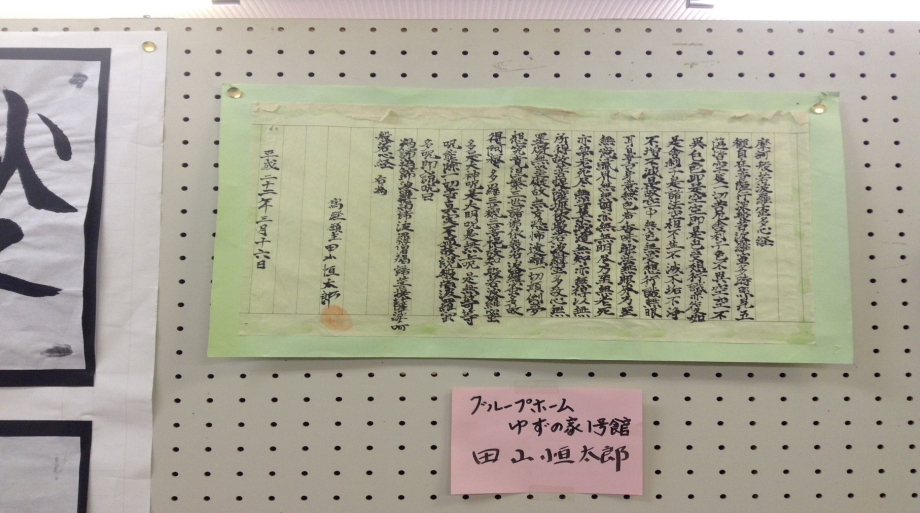 摩訶般若波羅蜜多心経
観自在菩薩行深般若波羅蜜多時照見五
蘊皆空度一切苦厄舎利子色不異空空不
異色色即是空空即是色受想行識亦復如
是舎利子是諸法空相不生不滅不垢不浄
不増不減是故空中無色無受想行識無眼
耳鼻舌身意無色声香味触法無眼界乃至
無意識界無無明亦無無明尽乃至無老死
亦無老死尽無苦集滅道無智亦無得以無
所得故菩提薩埵依般若波羅蜜多故心無
罣礙無罣礙故無有恐怖遠離一切顛倒夢
想究竟涅槃三世諸仏依般若波羅蜜多故
得阿耨多羅三藐三菩提故知般若波羅蜜
多是大神呪是大明呪是無上呪是無等等
呪能除一切苦真実不虚故説般若波羅蜜
多呪即説呪曰
羯諦羯諦波羅羯諦波羅僧羯諦菩提薩婆訶
般若心経 右為
田山恒太郎
平成二十二年二月十六日
グループホーム
ゆずの家1号館
田山恒太郎